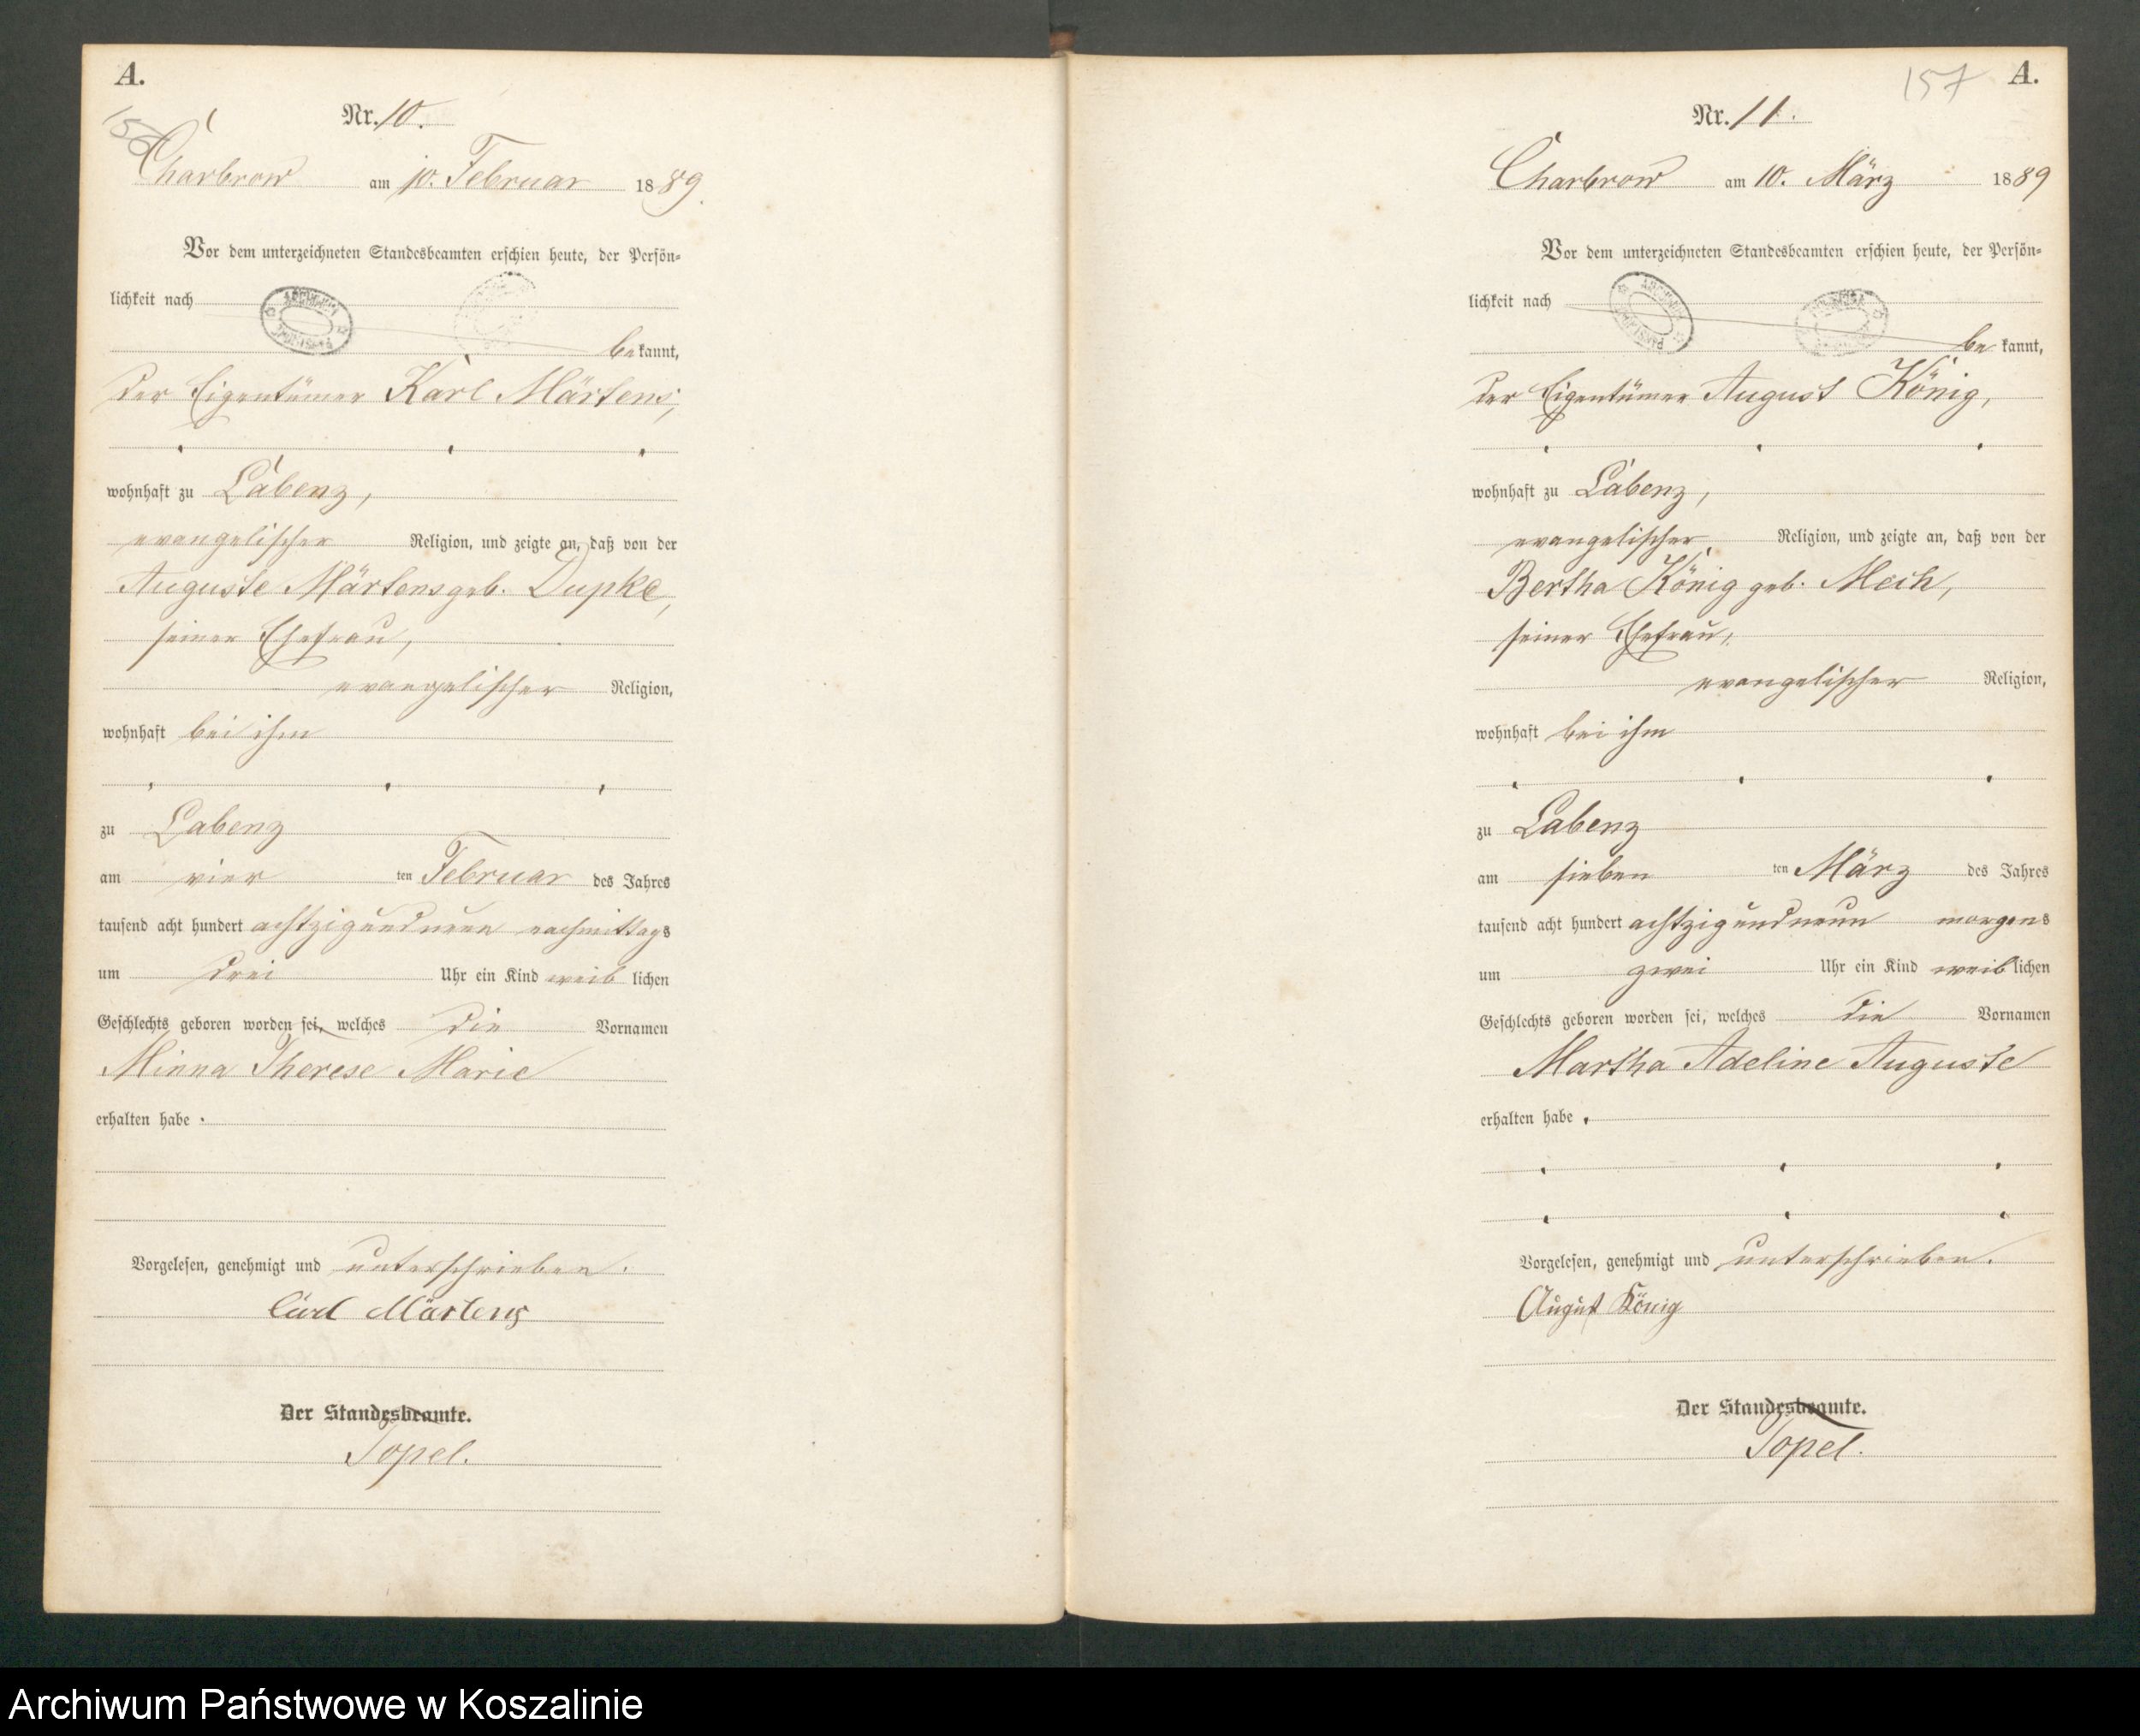 A.
Nr. 10.
Charbrow am 10. Februar 1889.
Vor dem unterzeichneten Standesbeamten erschien heute, der Persön-
lichkeit nach
be kannt,
der Eigentümer Karl Märtens,
wohnhaft zu Labenz,
evangelischer Religion, und zeigte an, daß von der
Auguste Märtens geb. Dupke,
seiner Ehefrau,
evangelischer Religion,
wohnhaft bei ihm
zu Labenz
am vier ten Februar des Jahres
tausend acht hundert achtzigundneun nachmittags
um drei Uhr ein Kind weib lichen
Geschlechts geboren worden sei, welches die Vornamen
Minna Therese Marie
erhalten habe.
Vorgelesen, genehmigt und unterschrieben.
Carl Märtens
Der Standesbeamte.
Topel.
157 A.
Nr. 11.
Charbrow am 10. März 1889
Vor dem unterzeichneten Standesbeamten erschien heute, der Persön-
lichkeit nach
be kannt,
der Eigentümer August König,
wohnhaft zu Labenz,
evangelischer Religion, und zeigte an, daß von der
Bertha König geb. Mech,
seiner Ehefrau,
evangelischer Religion,
wohnhaft bei ihm
zu Labenz
am sieben ten März des Jahres
tausend acht hundert achtzigundneun morgens
um zwei Uhr ein Kind weib lichen
Geschlechts geboren worden sei, welches die Vornamen
Martha Adeline Auguste
erhalten habe.
Vorgelesen, genehmigt und unterschrieben.
August König
Der Standesbeamte.
Topel.
Archiwum Państwowe w Koszalinie